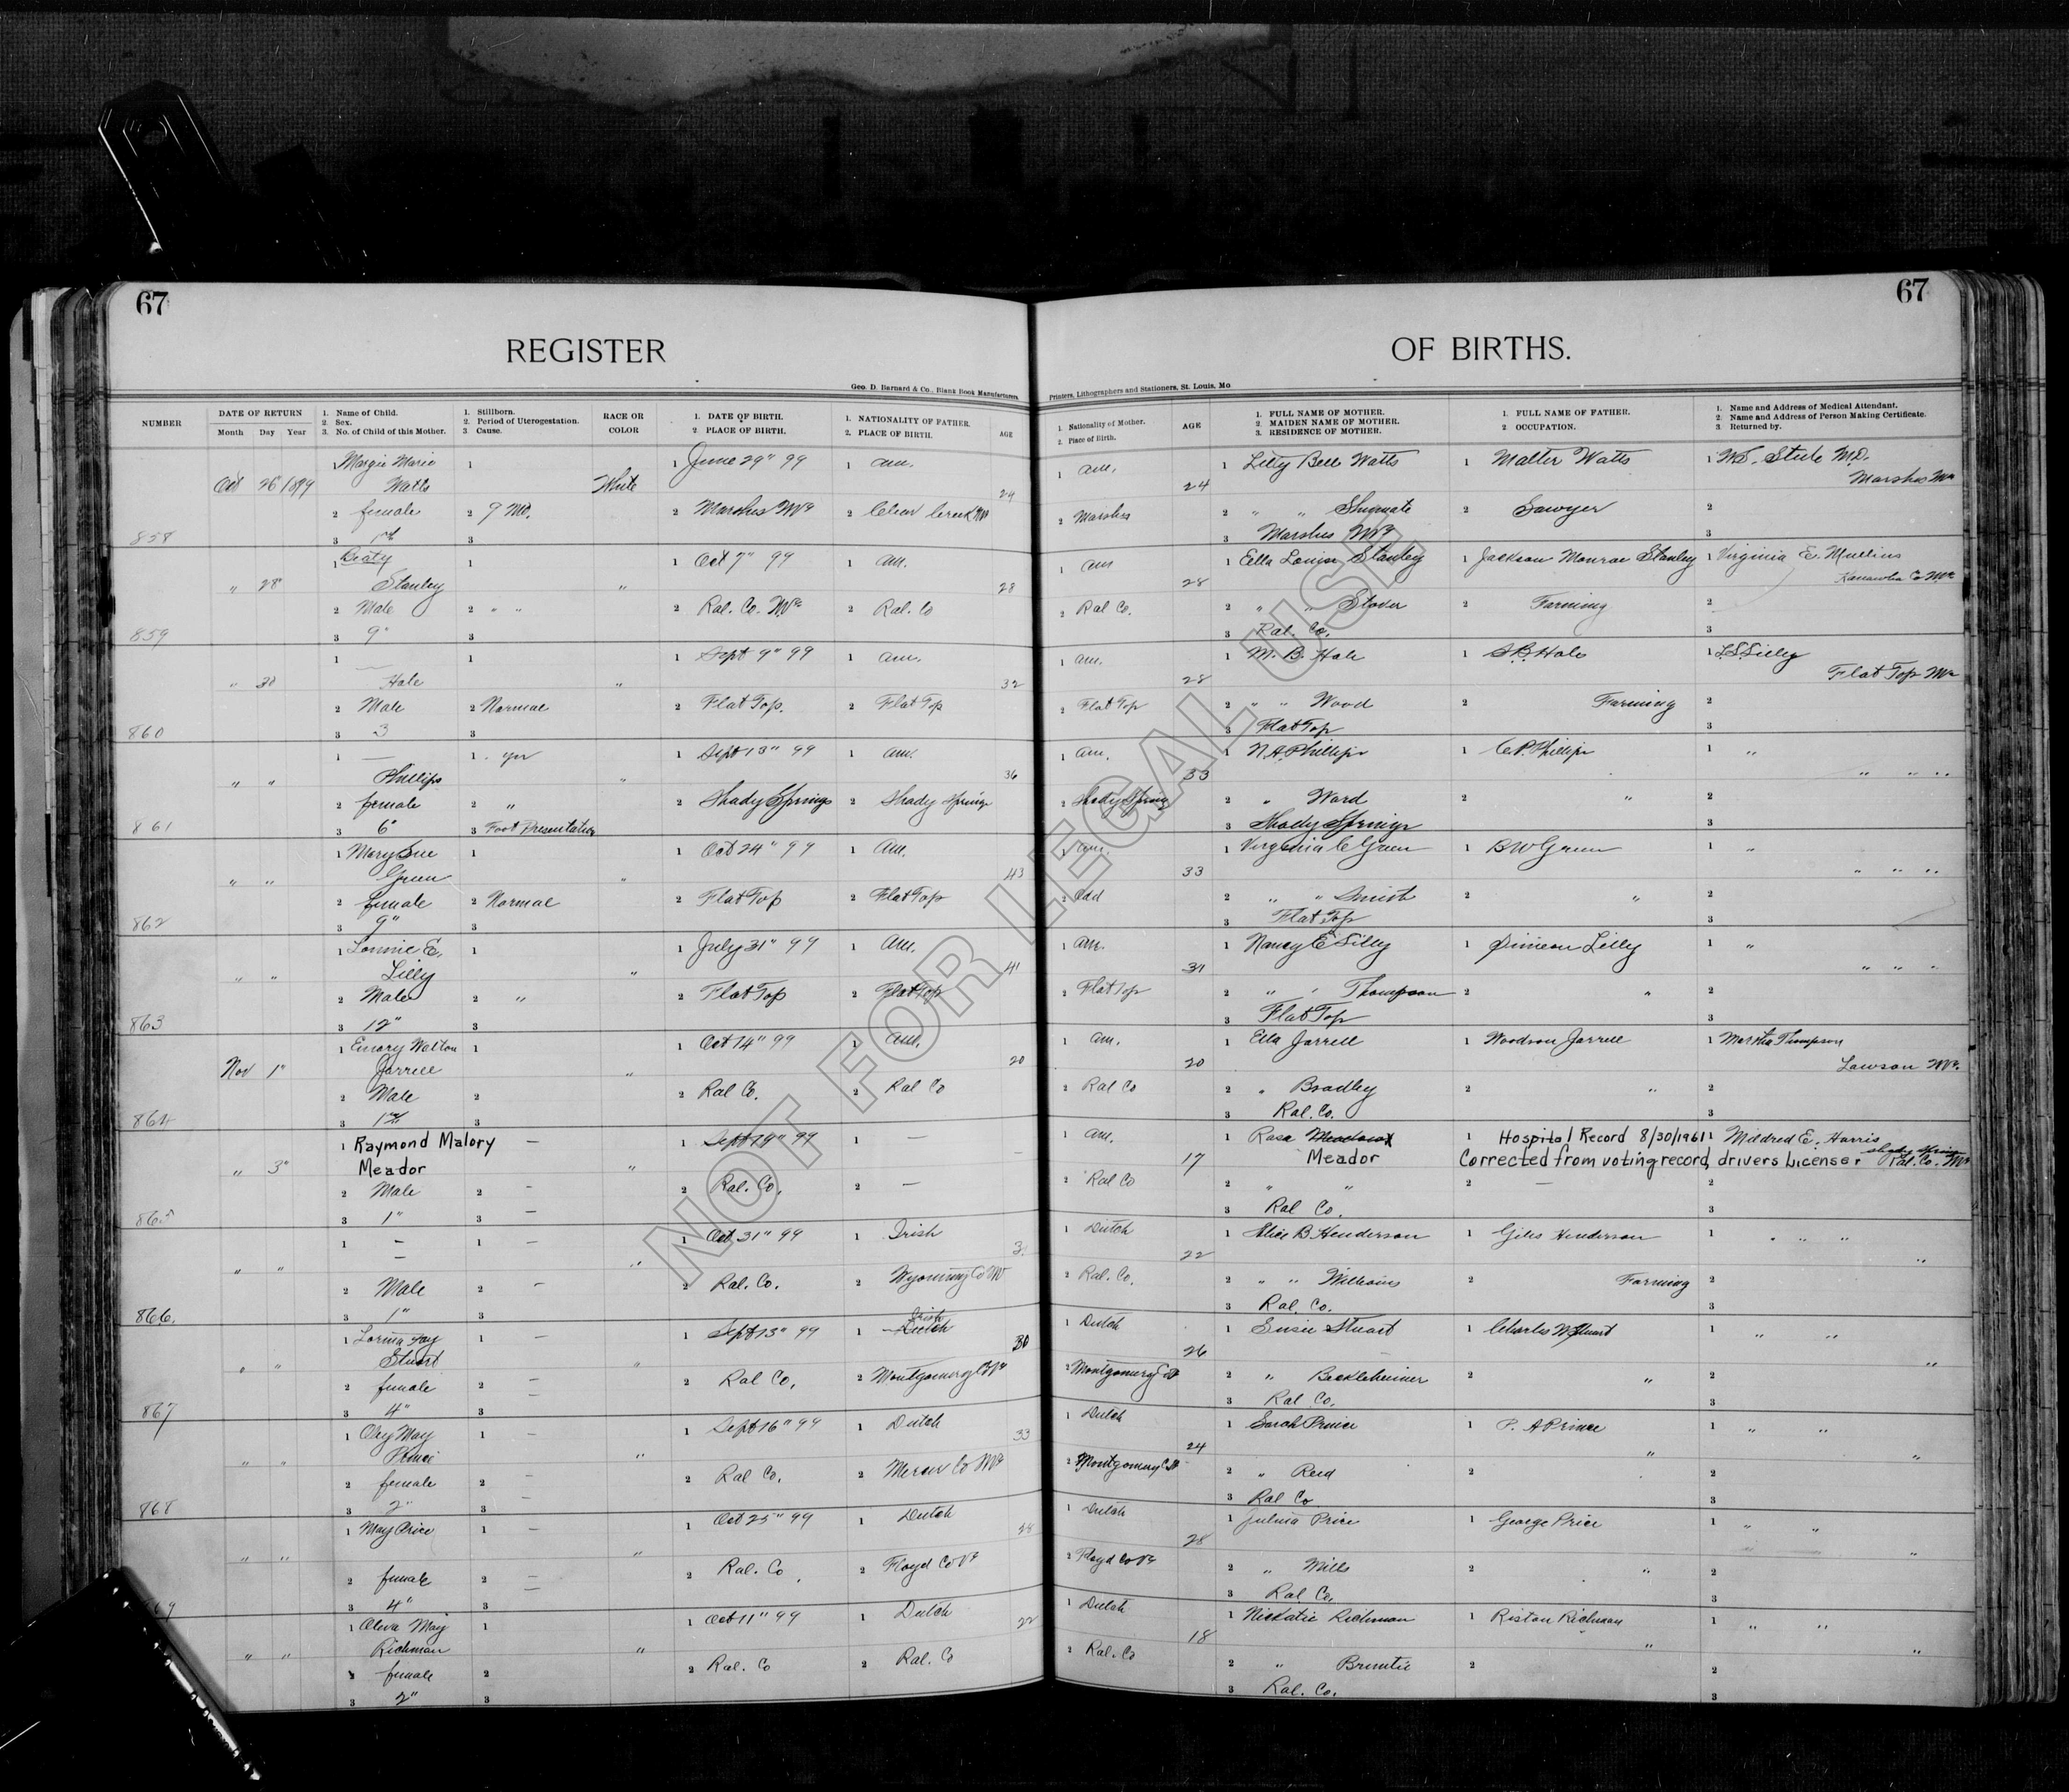 67
67
REGISTER
OF BIRTHS.
Geo. D. Barnard & Co., Blank Book Manufacturers,
Printers, Lithographers and Stationers, St. Louis, Mo
NUMBER
DATE OF RETURN
Month Day Year
1. Name of Child.
2. Sex.
3. No. of Child of this Mother.
1. Stillborn.
2. Period of Uterogestation.
3. Cause.
RACE OR
COLOR
1. DATE OF BIRTH.
2 PLACE OF BIRTH.
1. NATIONALITY OF FATHER.
2. PLACE OF BIRTH.
AGE
1. Nationality of Mother.
2. Place of Birth.
AGE
1. FULL NAME OF MOTHER.
2. MAIDEN NAME OF MOTHER.
3. RESIDENCE OF MOTHER.
1. FULL NAME OF FATHER.
2 OCCUPATION.
1. Name and Address of Medical Attendant.
2. Name and Address of Person Making Certificate.
3. Returned by.
1 Margie Marie 1 1 June 29" 99 1 am. 1 am. 1 Lilly Bell Watts 1 Walter Watts 1
Oct 26 1899 Watts White 29 24
2 female 2 9 Mo. 2 2 Clear Creek 2 2 " " Shumate 2 Sawyer 2
858 3 1st 3 3 3
1 Beaty 1 1 Oct 7" 99 1 am. 1 am 1 Ella Louisa Stanley 1 Jackson Monroe Stanley 1 Virginia E. Mullins
" 28" Stanley " 28 28 Kanawha Co
2 Male 2 " " 2 Ral. Co. 2 Ral. Co 2 Ral Co. 2 " " Stover 2 Farming 2
859 3 9" 3 3 Ral. Co. 3
1 — 1 1 Sept 9" 99 1 am. 1 am. 1 M. B. Hale 1 Hale 1 Lilly
" 30 Hale " 32 28 Flat Top
2 Male 2 Normal 2 Flat Top. 2 Flat Top 2 Flat Top 2 " " Wood 2 Farming 2
860 3 3 3 3 Flat Top 3
1 — 1 yes 1 Sept 13" 99 1 am. 1 am. 1 N.A. Phillips 1 C.P. Phillips 1 "
" " Phillips " 36 33 " " "
2 female 2 " 2 Shady Springs 2 Shady Springs 2 Shady Spring 2 " Ward 2 " 2
861 3 6" 3 Foot Presentation 3 Shady Springs 3
1 Mary Sue 1 1 Oct 24" 99 1 am. 1 am. 1 Virginia C Green 1 B W Green 1 "
" " Green " 43 33 " " "
2 female 2 Normal 2 Flat Top 2 Flat Top 2 2 " " Smith 2 " 2
862 3 9" 3 3 Flat Top 3
1 Lonnie E. 1 1 July 31" 99 1 am. 1 am. 1 Nancy E Lilly 1 Simeon Lilly 1 "
" " Lilly " 41 " " "
2 Male 2 " 2 Flat Top 2 Flat Top 2 Flat Top 2 " " Thompson 2 " 2
863 3 12" 3 3 Flat Top 3
1 Emory Walton 1 1 Oct 14" 99 1 am. 1 am. 1 Ella Jarrell 1 Woodson Jarrell 1 Martha Thompson
Nov 1" Jarrell " 20 20 Lawson
2 Male 2 2 Ral Co. 2 Ral Co 2 Ral Co 2 " Bradley 2 " 2
864 3 1st 3 3 Ral. Co. 3
1 Raymond Malory — 1 Sept 19" 99 1 — 1 am. 1 Rosa Meadows 1 Hospital Record 8/30/1961 1 Mildred E. Harris
" 3" Meador " 17 Meador Corrected from voting record, drivers License. Shady Spring Ral. Co.
2 Male 2 — 2 Ral. Co. 2 — 2 Ral Co 2 " " 2 — 2
865 3 1" 3 — 3 Ral Co. 3
1 — 1 — 1 Oct 31" 99 1 Irish 1 Dutch 1 Alice B. Henderson 1 Giles Henderson 1 " " "
" " — " 22 "
2 Male 2 — 2 Ral. Co. 2 Wyoming Co 2 Ral. Co. 2 " " Williams 2 Farming 2
866. 3 1" 3 3 Ral. Co. 3
Irish
1 Lorina Fay 1 — 1 Sept 13" 99 1 Dutch 1 Dutch 1 Susie Stuart 1 Charles W Stuart 1 " "
" " Stuart " 30 26 "
2 female 2 — 2 Ral Co. 2 Montgomery Co Va 2 Montgomery Co 2 " Beckleheimer 2 " 2
867 3 4" 3 3 Ral Co. 3
1 Ocy May 1 — 1 Sept 16" 99 1 Dutch 1 Dutch 1 Sarah Prince 1 P. A Prince 1 " "
" " Prince " 33 24 " "
2 female 2 — 2 Ral Co. 2 Mercer Co 2 Montgomery Co 2 " Reed 2 2
868 3 2" 3 — 3 Ral Co 3
1 May Price 1 — 1 Oct 25" 99 1 Dutch 1 Dutch 1 Julina Price 1 George Price 1 " "
" " " 28 28 "
2 female 2 — 2 Ral. Co 2 Floyd Co Va 2 Floyd Co Va 2 " Mills 2 " 2
3 4" 3 3 Ral Co. 3
1 Oleva May 1 1 Oct 11" 99 1 Dutch 1 Dutch 1 Richman 1 Riston Richman 1 " "
" " Richman " 22 18 " "
2 female 2 2 Ral. Co 2 Ral. Co 2 Ral. Co 2 " 2 2
3 2" 3 3 Ral. Co. 3
NOT FOR LEGAL USE